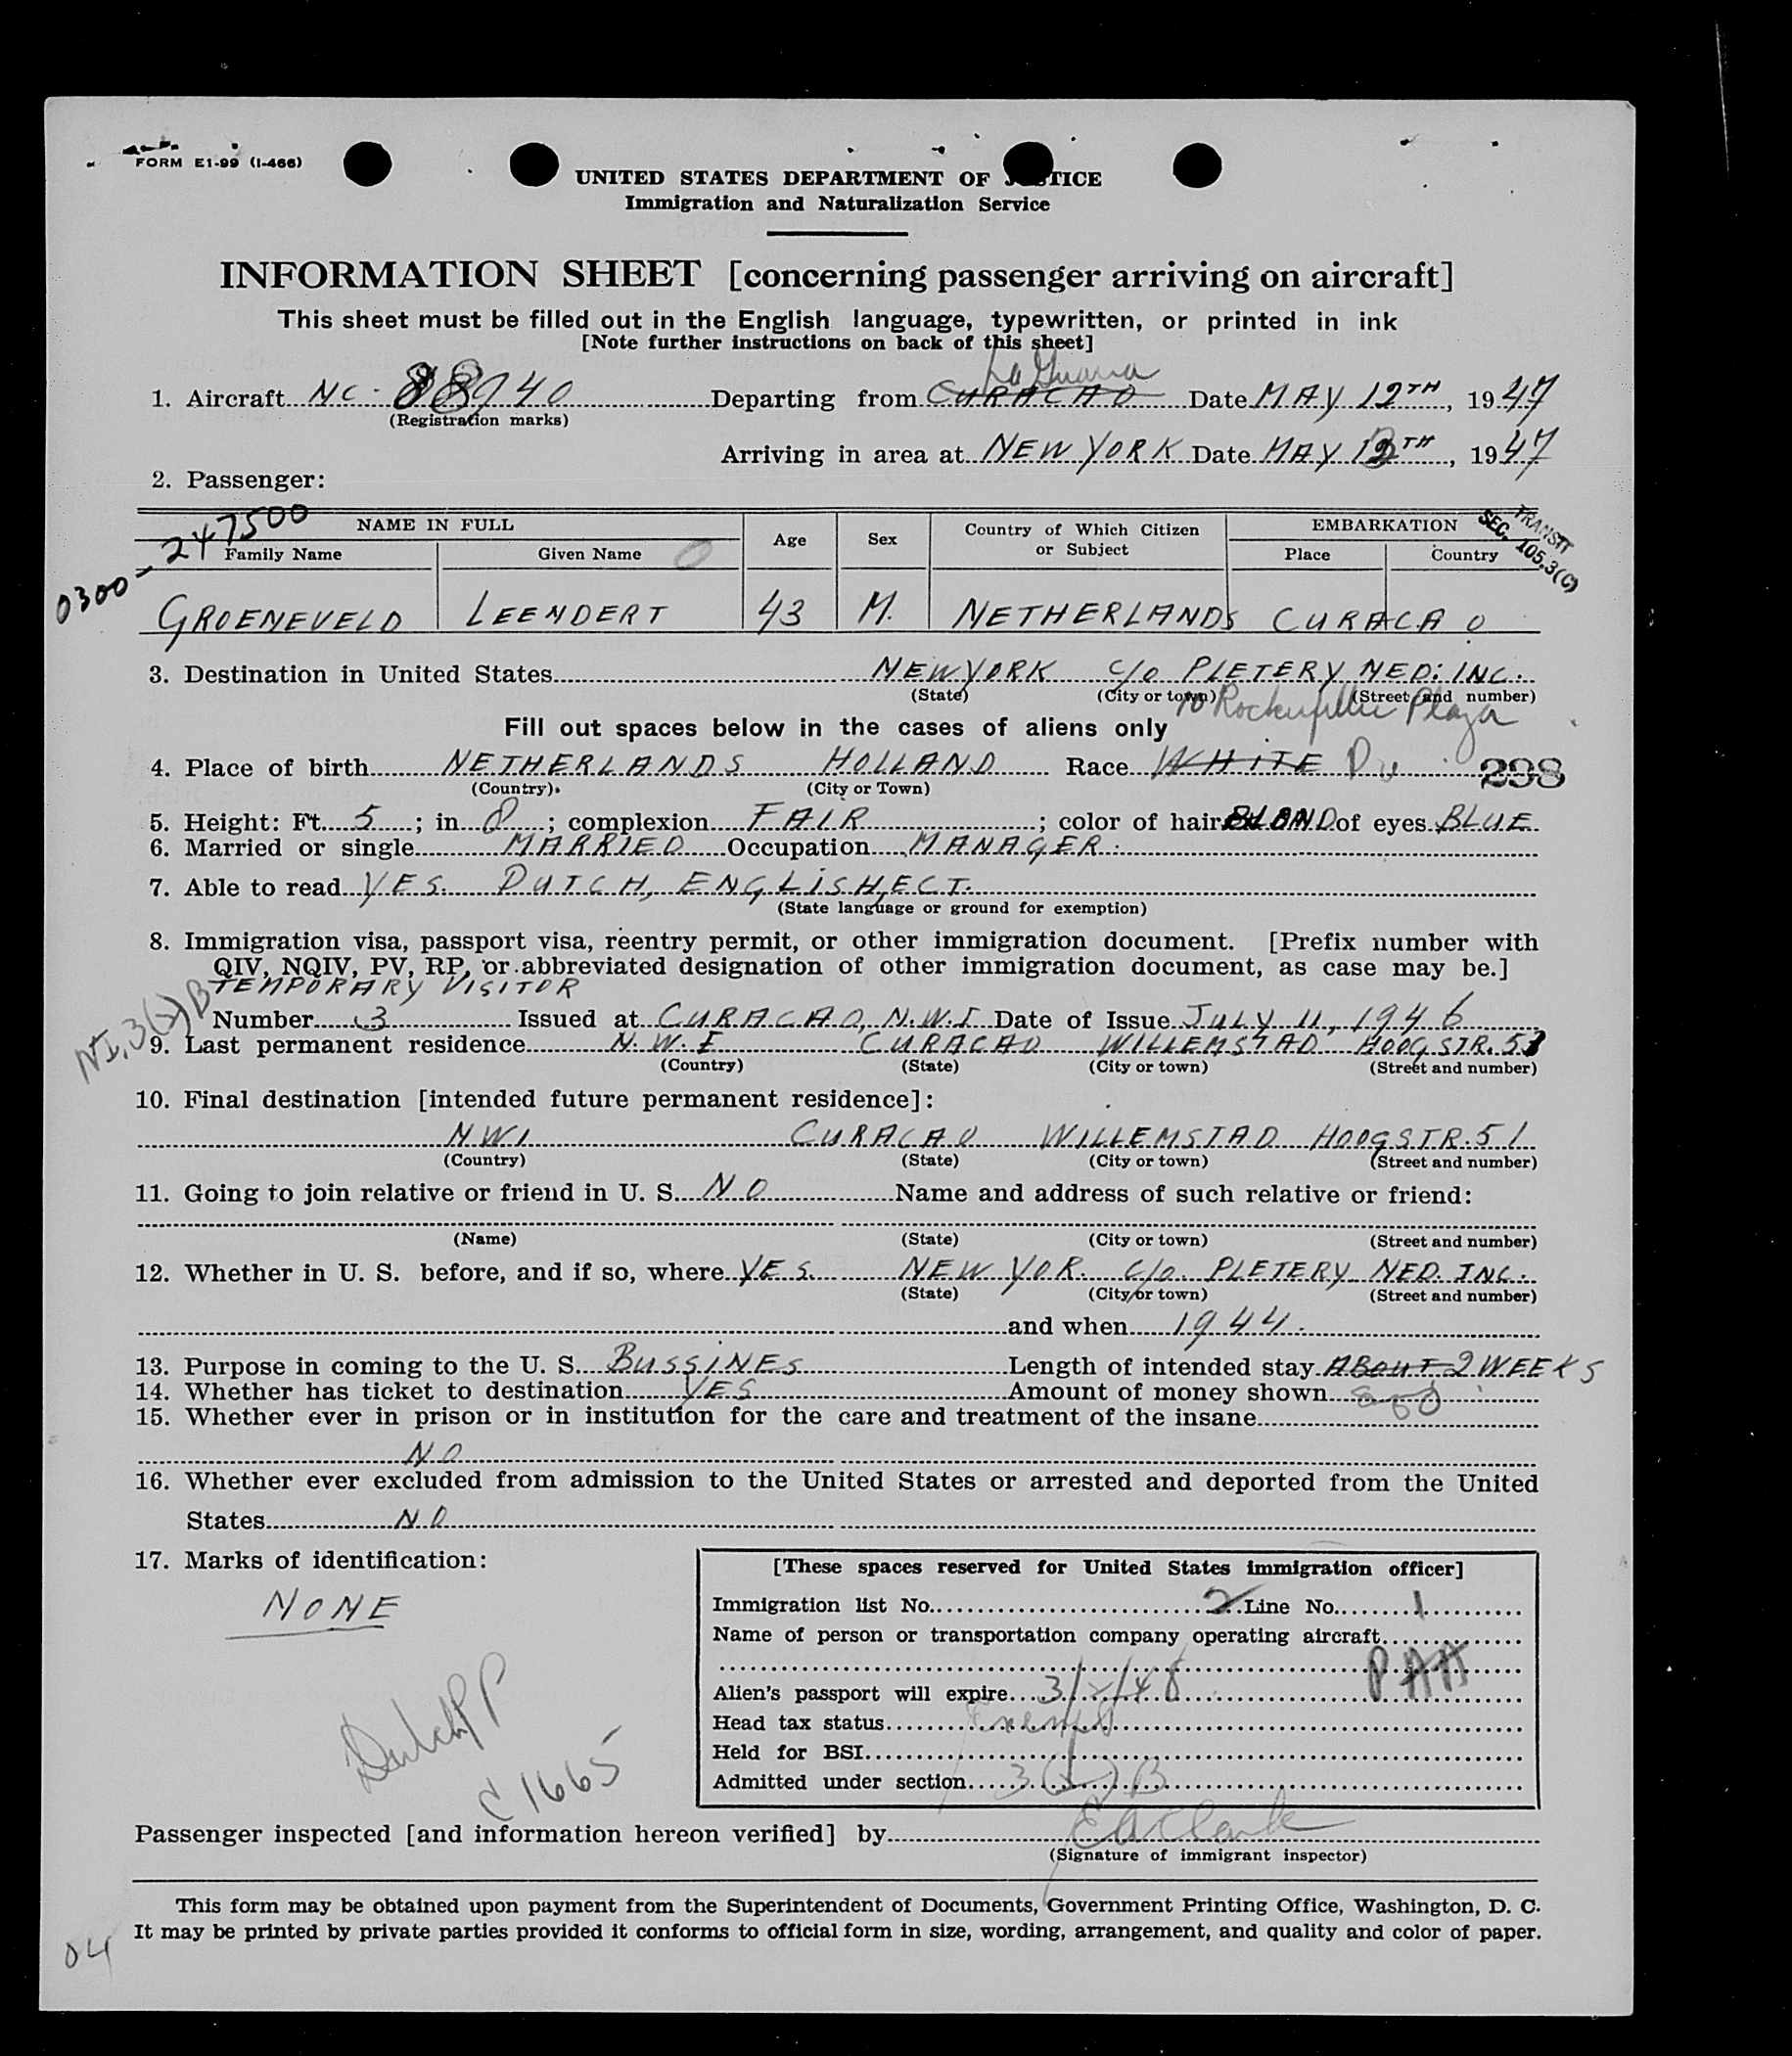 FORM E1-99 (I-466)
UNITED STATES DEPARTMENT OF J TICE
Immigration and Naturalization Service
INFORMATION SHEET [concerning passenger arriving on aircraft]
This sheet must be filled out in the English language, typewritten, or printed in ink
[Note further instructions on back of this sheet]
La Guaira
1. Aircraft NC-88940 Departing from CURACAO Date MAY 12TH, 1947
(Registration marks)
Arriving in area at NEW YORK Date MAY 13TH, 1947
2. Passenger:
0300-247500
TRANSIT
SEC. 105.3(C)
NAME IN FULL Age Sex Country of Which Citizen or Subject EMBARKATION
Family Name Given Name Place Country
GROENEVELD LEENDERT 43 M. NETHERLANDS CURACAO
3. Destination in United States NEW YORK C/O PLETERY NED: INC.
(State) (City or town) (Street and number)
10 Rockefeller Plaza
Fill out spaces below in the cases of aliens only
4. Place of birth NETHERLANDS HOLLAND Race WHITE Du 298
(Country) (City or Town)
5. Height: Ft. 5; in 8; complexion FAIR; color of hair BLOND of eyes BLUE
6. Married or single MARRIED Occupation MANAGER
7. Able to read YES. DUTCH, ENGLISH, ECT.
(State language or ground for exemption)
8. Immigration visa, passport visa, reentry permit, or other immigration document. [Prefix number with
QIV, NQIV, PV, RP, or abbreviated designation of other immigration document, as case may be.]
TEMPORARY VISITOR
NI, 3(2)B
Number 3 Issued at CURACAO, N.W.I Date of Issue JULY 11, 1946
9. Last permanent residence N.W.I CURACAO WILLEMSTAD HOOGSTR. 51
(Country) (State) (City or town) (Street and number)
10. Final destination [intended future permanent residence]:
NWI CURACAO WILLEMSTAD HOOGSTR. 51
(Country) (State) (City or town) (Street and number)
11. Going to join relative or friend in U. S. NO Name and address of such relative or friend:
(Name) (State) (City or town) (Street and number)
12. Whether in U. S. before, and if so, where YES NEW YOR. C/O. PLETERY NED. INC.
(State) (City or town) (Street and number)
and when 1944.
13. Purpose in coming to the U. S. BUSSINES Length of intended stay ABOUT 2 WEEKS
14. Whether has ticket to destination YES Amount of money shown
15. Whether ever in prison or in institution for the care and treatment of the insane
NO
16. Whether ever excluded from admission to the United States or arrested and deported from the United
States NO
17. Marks of identification:
NONE
[These spaces reserved for United States immigration officer]
Immigration list No. 2 Line No. 1
Name of person or transportation company operating aircraft
PAA
Alien's passport will expire 3/2/48
Head tax status Exempt
Held for BSI
Admitted under section 3(2)B
Dutch PP
C1665
Passenger inspected [and information hereon verified] by EA Clark
(Signature of immigrant inspector)
This form may be obtained upon payment from the Superintendent of Documents, Government Printing Office, Washington, D. C.
It may be printed by private parties provided it conforms to official form in size, wording, arrangement, and quality and color of paper.
04